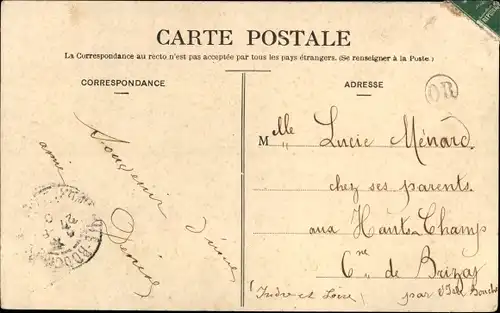 CARTE POSTALE
La Correspondance au recto n'est pas acceptée par tous les pays étrangers. (Se renseigner à la Poste.)
CORRESPONDANCE
Souvenir d'une
amie
Denise
ADRESSE
OR
Mlle Lucie Ménard
chez ses parents
aux Hauts-Champ
Cne de Brizay
(Indre et Loire) par